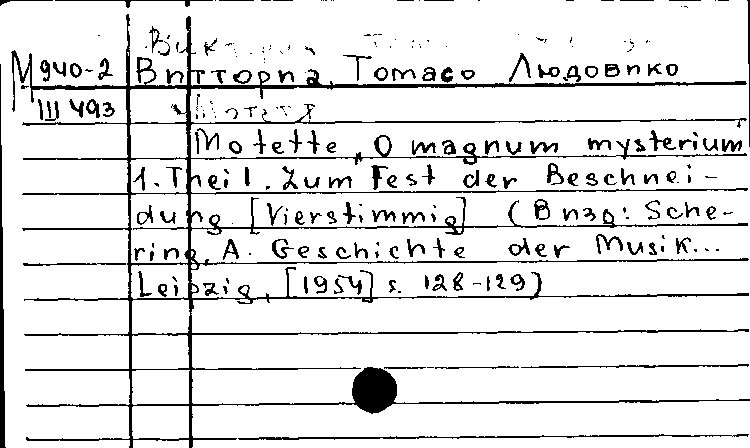 М 940-2 Витториа, Томасо Людовико
III 493
Motette „O magnum mysterium"
1. Theil. Zum Fest der Beschnei-
dung [Vierstimmig] (В изд: Sche-
ring, A. Geschichte der Musik...
Leipzig, [1954] s. 128-129)